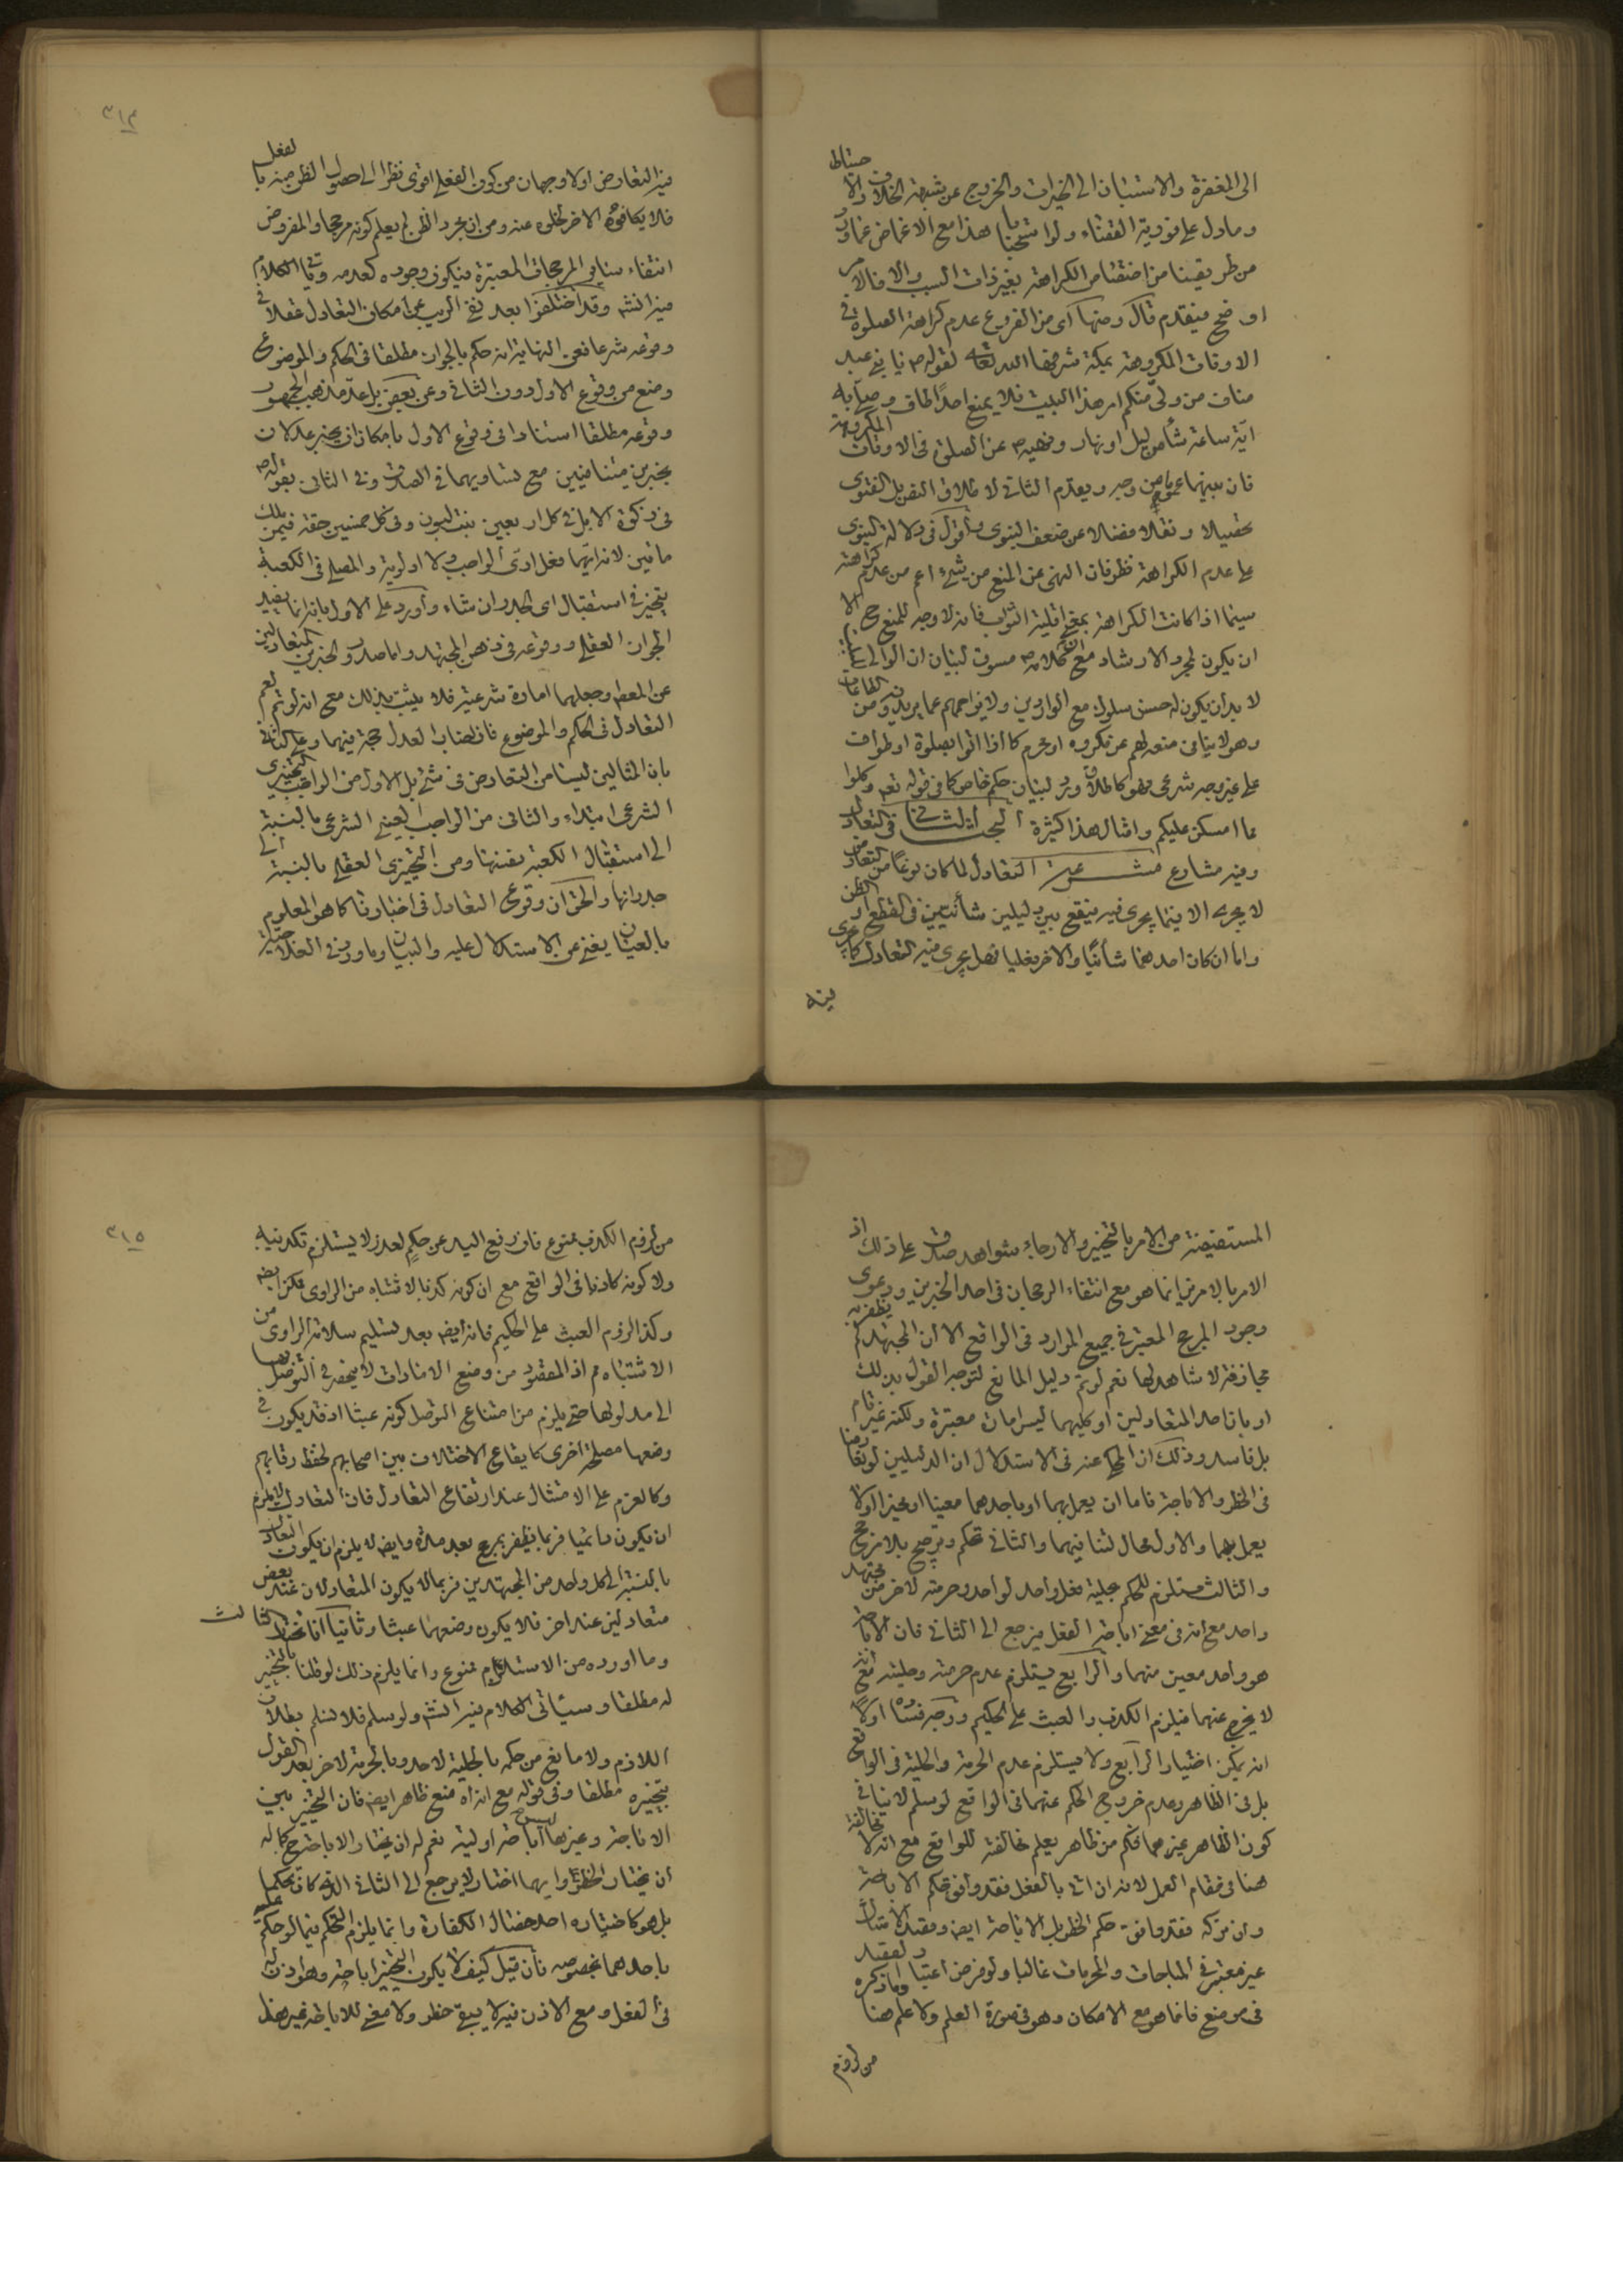 الى المغفرة والاستباق الى الخيرات والخروج عن شبهة الخلاف والاحتياط
وما دل على فورية القضاء ولو استحبابا هذا مع الاغماض عما ورد
من طريقنا من اختصاص الكراهة بغير ذات السبب والا فالامر
اوضح فيقدم قال ومنها اى من الفروع عدم كراهة الصلوة فى
الاوقات المكروهة بمكة شرفها الله تعالى لقوله ص يا بنى عبد
مناف من ولى منكم امر هذا البيت فلا يمنع احدا طاف وصلى به
اية ساعة شاء من ليل او نهار ونهيه ص عن الصلوة فى الاوقات المكروهة
فان بينهما عموما من وجه ويقدم الثانى لاطلاق النص بل الفتوى
تحصيلا ونقلا فضلا عن ضعف النبوى واقول فى دلالة النبوى
على عدم الكراهة نظر فان النهى عن المنع من شىء اعم من عدم كراهته
سيما اذا كانت الكراهة بمعنى اقلية الثواب فانه لا وجه للمنع ح الا
ان يكون لمجرد الارشاد مع ان كلامه ص مسوق لبيان ان الوالى
لا بد ان يكون له حسن سلوك مع الواردين ولا يزاحمهم عما يريدونه من الطاعات
وهو لا ينافى منعه لهم عن مكروه او محرم كما اذا اتوا بصلوة او طواف
على غير وجه شرعى فهو كاطلاق ورد لبيان حكم خاص كما فى قوله تعه وكلوا
مما امسكن عليكم وامثال هذا كثيرة المبحث الثانى فى التعادل
وفيه مشارع مشرع التعادل لما كان نوعا من التعارض
لا يجرى الا فيما يجرى فيه فيقع بين دليلين شأنيين فى القطع او الظن
واما ان كان احدهما شأنيا والاخر فعليا فهل يجرى فيه التعادل كما يجرى
فيه
٣١٤
فيه التعارض اولا وجهان من كون الفعلى اقوى نظرا الى حصول الظن منه بالفعل
فلا يكافؤه الاخر لخلوه عنه ومن ان مجرد الظن لم يعلم كونه مرجحا والمفروض
انتفاء سائر المرجحات المعتبرة فيكون وجوده كعدمه وياتى الكلام
فيه انش وقد اختلفوا بعد نفى الريب عن امكان التعادل عقلا فى
وقوعه شرعا فعن النهاية انه حكم بالجواز مطلقا فى الحكم والموضوع
ومنع من وقوع الاول دون الثانى وعن بعض بل عد مذهب الجمهور
وقوعه مطلقا استنادا فى وقوع الاول بامكان ان يخبر عدلان
بخبرين متنافيين مع تساويهما فى الصدق وفى الثانى بقوله ص
فى زكوة الابل فى كل اربعين بنت لبون وفى كل خمسين حقة فيمن ملك
مائتين لانه ايهما فعل ادى الواجب ولا اولوية والمصلى فى الكعبة
يتخير فى استقبال اى الجدران شاء واورد على الاول بانه انما يفيد
الجواز العقلى ووقوعه فى ذهن المجتهد واما صدور الخبرين المتعادلين
عن المعصوم وجعلهما امارة شرعية فلا يثبت بذلك مع انه لو تم لعم
التعادل فى الحكم والموضوع فان اخبار العدل حجة فيهما وعلى الثانى
بان المثالين ليسا من التعارض فى شىء بل الاول من الواجب التخييرى
الشرعى ابتداء والثانى من الواجب العينى الشرعى بالنسبة
الى استقبال الكعبة نفسها ومن التخييرى العقلى بالنسبة الى
جدرانها والحق ان وقوع التعادل فى اخبارنا كما هو المعلوم
بالعيان يغنى عن الاستدلال عليه والبيان وما ورد فى العلاجية
المستفيضة من الامر بالتخيير والارجاء شواهد صدق على ذلك اذ
الامر بالامرين انما هو مع انتفاء الرجحان فى احد الخبرين ودعوى
وجود المرجح المعتبر فى جميع الموارد فى الواقع الا ان المجتهد لم يظفر به
مجازفة لا شاهد لها نعم لو تم دليل المانع لتوجه القول بذلك
او بان احد المتعادلين او كليهما ليس امارة معتبرة ولكنه غير تام
بل فاسد وذلك ان المحكى عنه فى الاستدلال ان الدليلين لو تعارضا
فى الحظر والاباحة فاما ان يعمل بهما او باحدهما معينا او مخيرا او لا
يعمل بهما والاول محال لتنافيهما والثانى تحكم وترجيح بلا مرجح
والثالث مستلزم للحكم بحلية فعل واحد لواحد وحرمته لاخر من مجتهد
واحد مع انه فى معنى اباحة الفعل فيرجع الى الثانى فان الاباحة
هو واحد معين منهما والرابع يستلزم عدم حرمته وحليته مع انه
لا يخرج عنهما فيلزم الكذب والعبث على الحكيم ووجه فساده اولا
انه يمكن اختيار الرابع ولا يستلزم عدم الحرمة والحلية فى الواقع
بل فى الظاهر وعدم خروج الحكم عنهما فى الواقع لو سلم لا ينافى
كون الظاهر غيرهما فكم من ظاهر يعلم مخالفته للواقع مع انه لا مخالفة
هنا فى مقام العمل لانه ان اتى بالفعل فقد وافق حكم الاباحة
وان تركه فقد وافق حكم الحظر بل الاباحة ايض وقصد الامتثال
غير معتبر فى المباحات والمحرمات غالبا ولو فرض اعتبار القصد وما ذكره
فى موضع فانما هو مع الامكان وهو فى صورة العلم ولا علم هنا
من لزوم
٣١٥
من لزوم الكذب ممنوع فان رفع اليد عن حكم لعذر لا يستلزم تكذيبه
ولا كونه كاذبا فى الواقع مع ان كونه كذبا لاشتباه من الراوى ممكن ايض
وكذا لزوم العبث على الحكيم فانه ايض بعد تسليم سلامة الراوى من
الاشتباه م اذ المقصود من وضع الامارات لا ينحصر فى التوصل بها
الى مدلولها حتى يلزم من امتناع التوصل كونه عبثا اذ قد يكون فى
وضعها مصلحة اخرى كايقاع الاختلاف بين اصحابهم لحفظ رقابهم
وكالعزم على الامتثال عند ارتفاع التعادل فان التعادل لا يلزم
ان يكون دائميا فربما يظفر بمرجح بعد مدة وايض لا يلزم ان يكون التعادل
بالنسبة الى كل واحد من المجتهدين فربما لا يكون المتعادلان عند بعض
متعادلين عند اخر فلا يكون وضعهما عبثا وثانيا انا نختار الثالث
وما اورده من الاستلزام ممنوع وانما يلزم ذلك لو قلنا بالتخيير
له مطلقا وسيأتى الكلام فيه انش ولو سلم فلا نسلم بطلان
اللازم ولا مانع من حكمه بالحلية لاحد وبالحرمة لاخر بعد القول
بتخييره مطلقا وفى قوله مع انه اه منع ظاهر ايض فان التخيير بين
الاباحة وغيرها ليس اباحة اولية نعم له ان يختار الاباحة ح كما له
ان يختار الحظر وايهما اختار لا يرجع الى الثانى الذى كان تحكما
بل هو كاختياره احد خصال الكفارة وانما يلزم التحكم فيما لو حكم عليه
باحدهما بخصوصه فان قيل كيف لا يكون التخيير اباحة وهو اذن له
فى الفعل ومع الاذن فيه لا يبقى حظر ولا معنى للاباحة غير هذا